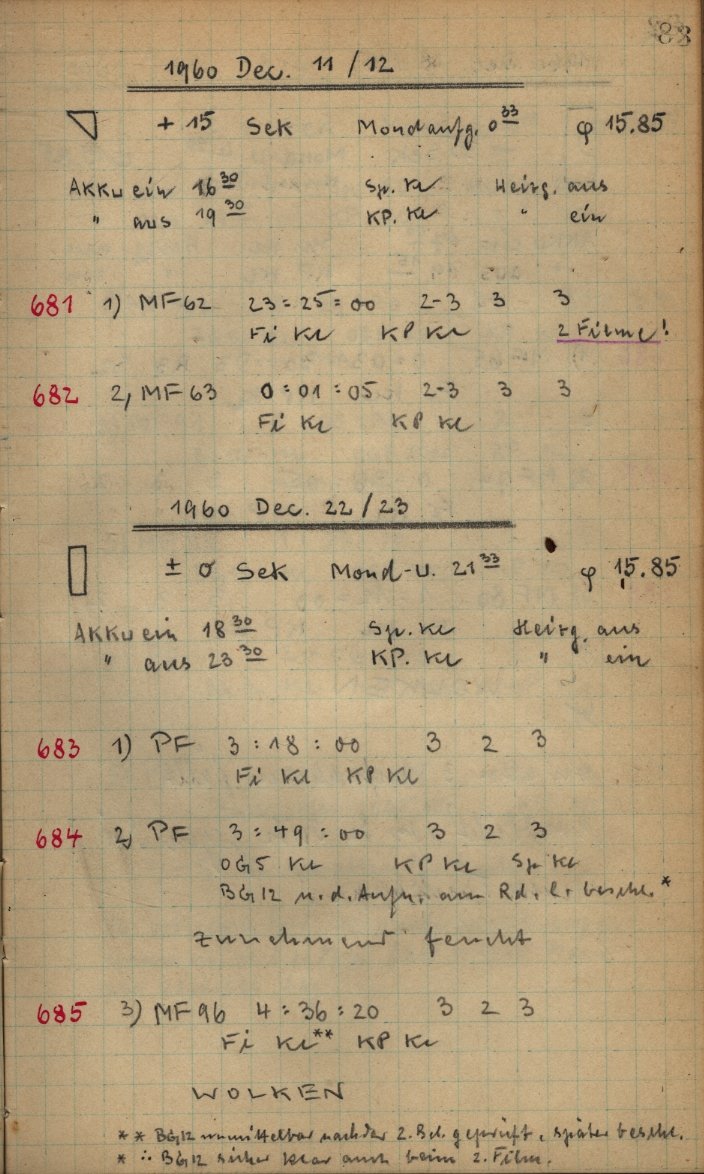 83
1960 Dec. 11/12
+ 15 Sek Mondaufg. 0 33 φ 15.85
Akku ein 16 30 Sp. Kl Heizg. aus
" aus 19 30 KP. Kl " ein
681 1) MF62 23:25:00 2-3 3 3
Fi Kl KP Kl 2 Filme!
682 2, MF 63 0:01:05 2-3 3 3
Fi Kl KP Kl
1960 Dec. 22/23
± 0 Sek Mond-U. 21 33 φ 15.85
Akku ein 18 30 Sp. Kl Heizg. aus
" aus 23 30 KP. Kl " ein
683 1) PF 3:18:00 3 2 3
Fi Kl KP Kl
684 2, PF 3:49:00 3 2 3
OG5 Kl KP Kl Sp Kl
BG12 n. d. Aufn. am Rd. l. beschl.*
Zunehmend feucht
685 3) MF96 4:36:20 3 2 3
Fi Kl** KP Kl
WOLKEN
** BG12 unmittelbar nach der 2. Bel. geprüft, später beschl.
* ∴ BG12 sicher klar auch beim 2. Film.